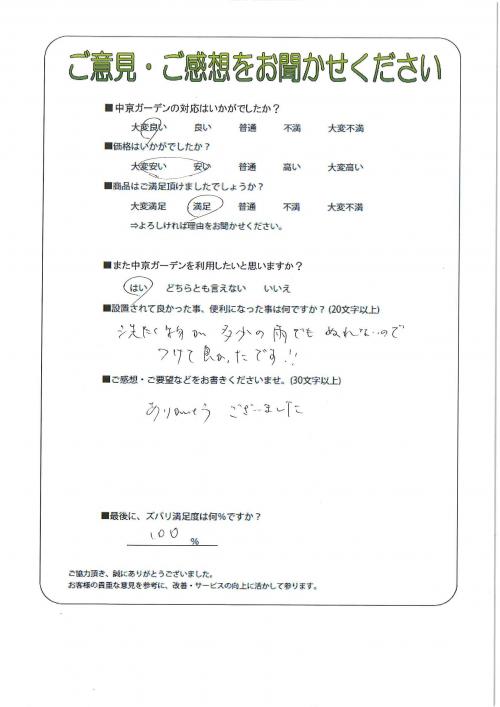 ご意見・ご感想をお聞かせください
■中京ガーデンの対応はいかがでしたか?
大変良い 良い 普通 不満 大変不満
■価格はいかがでしたか?
大変安い 安い 普通 高い 大変高い
■商品はご満足頂けましたでしょうか?
大変満足 満足 普通 不満 大変不満
⇒よろしければ理由をお聞かせください。
■また中京ガーデンを利用したいと思いますか?
はい どちらとも言えない いいえ
■設置されて良かった事、便利になった事は何ですか?(20文字以上)
洗たく物が 多少の雨でも ぬれないので
つけて良かったです!!
■ご感想・ご要望などをお書きくださいませ。(30文字以上)
ありがとう ございました
■最後に、ズバリ満足度は何%ですか?
100 %
ご協力頂き、誠にありがとうございました。
お客様の貴重な意見を参考に、改善・サービスの向上に活かして参ります。